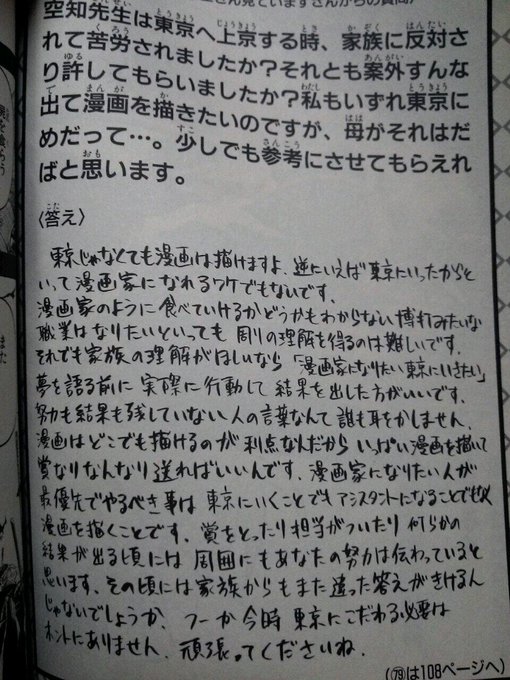 空知先生は東京へ上京する時、家族に反対さ
れて苦労されましたか？それとも案外すんな
り許してもらいましたか？私もいずれ東京に
出て漫画を描きたいのですが、母がそれはだ
めだって…。少しでも参考にさせてもらえれ
ばと思います。
〈答え〉
東京じゃなくても漫画は描けますよ、逆にいえば東京にいったからと
いって漫画家になれるワケでもないです。
漫画家のように食べていけるかどうかもわからない博打みたいな
職業はなりたいといっても周りの理解を得るのは難しいです。
それでも家族の理解がほしいなら「漫画家になりたい東京にいきたい」
夢を語る前に実際に行動して結果を出した方がいいです。
努力も結果も残していない人の言葉なんて誰も耳をかしません。
漫画はどこでも描けるのが利点なんだからいっぱい漫画を描いて
賞なりなんなり送ればいいんです。漫画家になりたい人が
最優先でやるべき事は東京にいくことでもアシスタントになることでもなく
漫画を描くことです。賞をとったり担当がついたり何らかの
結果が出る頃には周囲にもあなたの努力は伝わっていると
思います。その頃には家族からもまた違った答えがきけるん
じゃないでしょうか、つーか今時東京にこだわる必要は
ホントにありません。頑張ってくださいね。
(79は108ページへ)